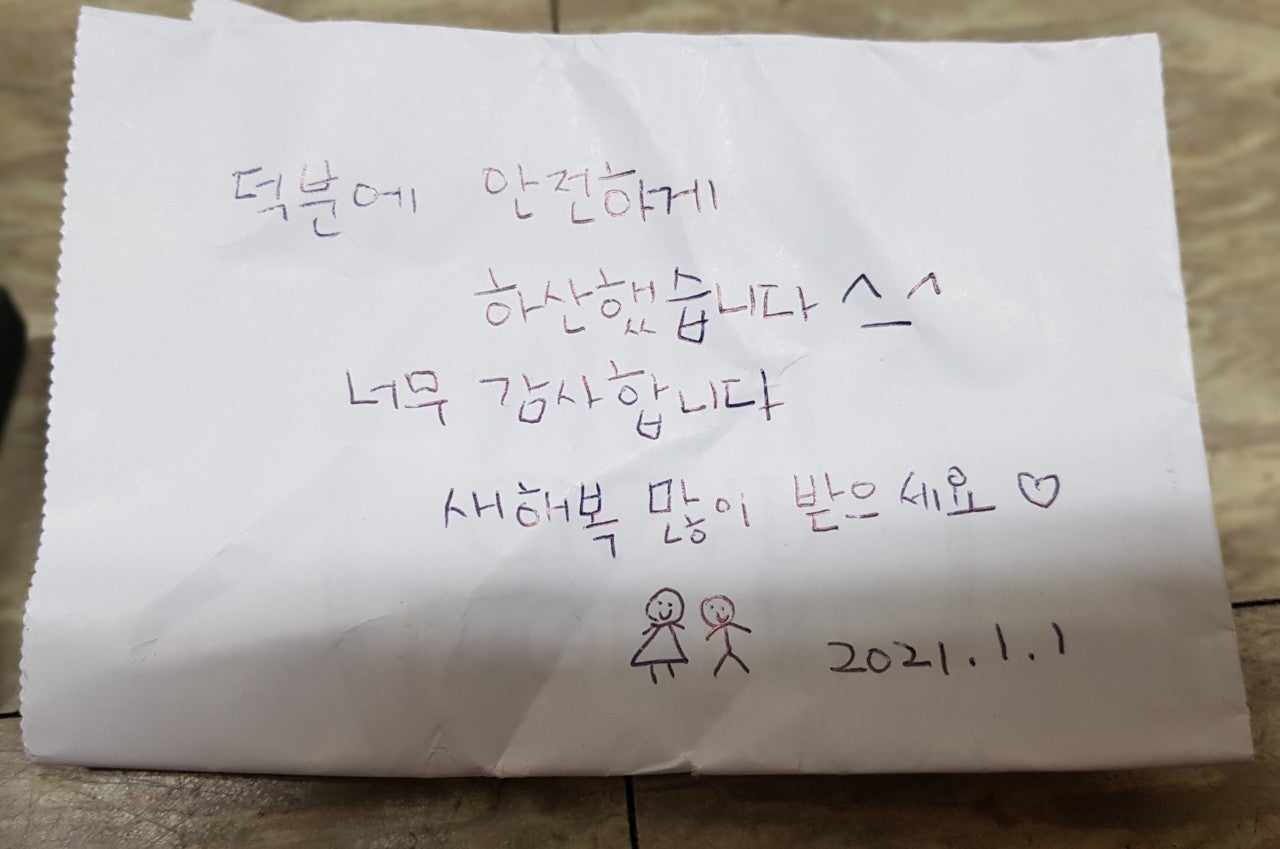 덕분에 안전하게
하산했습니다 ^_^
너무 감사합니다
새해복 많이 받으세요 ♡
2021.1.1